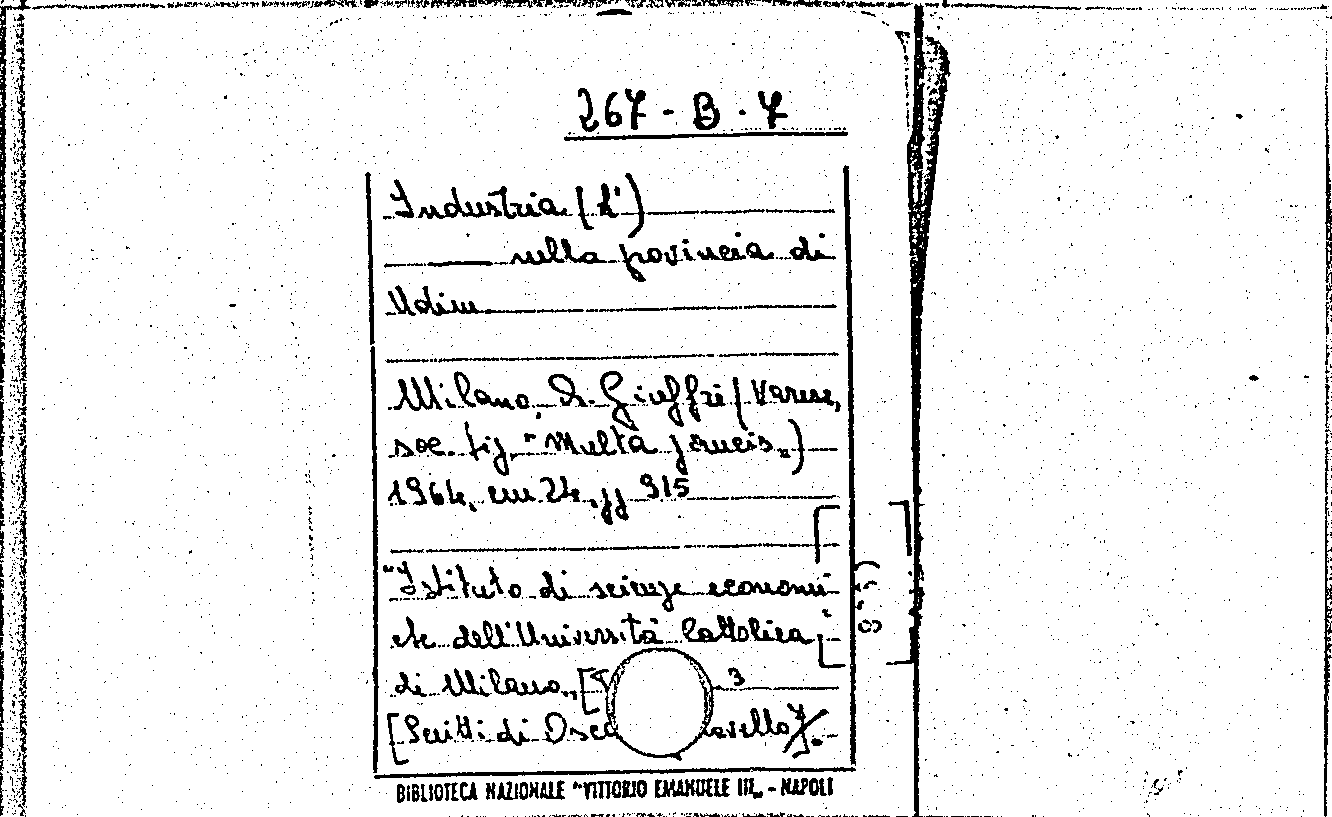 267 - B. 7
Industria (L')
—— nella povincia di
Udine
Milano, A. Giuffrè (Varese,
soc. tip. "Multa paucis")
1964, cm 24, pp 315
"Istituto di scienze economi-
che dell'Università Cattolica
di Milano" [
3
[Scritti di
BIBLIOTECA NAZIONALE "VITTORIO EMANUELE III" - NAPOLI